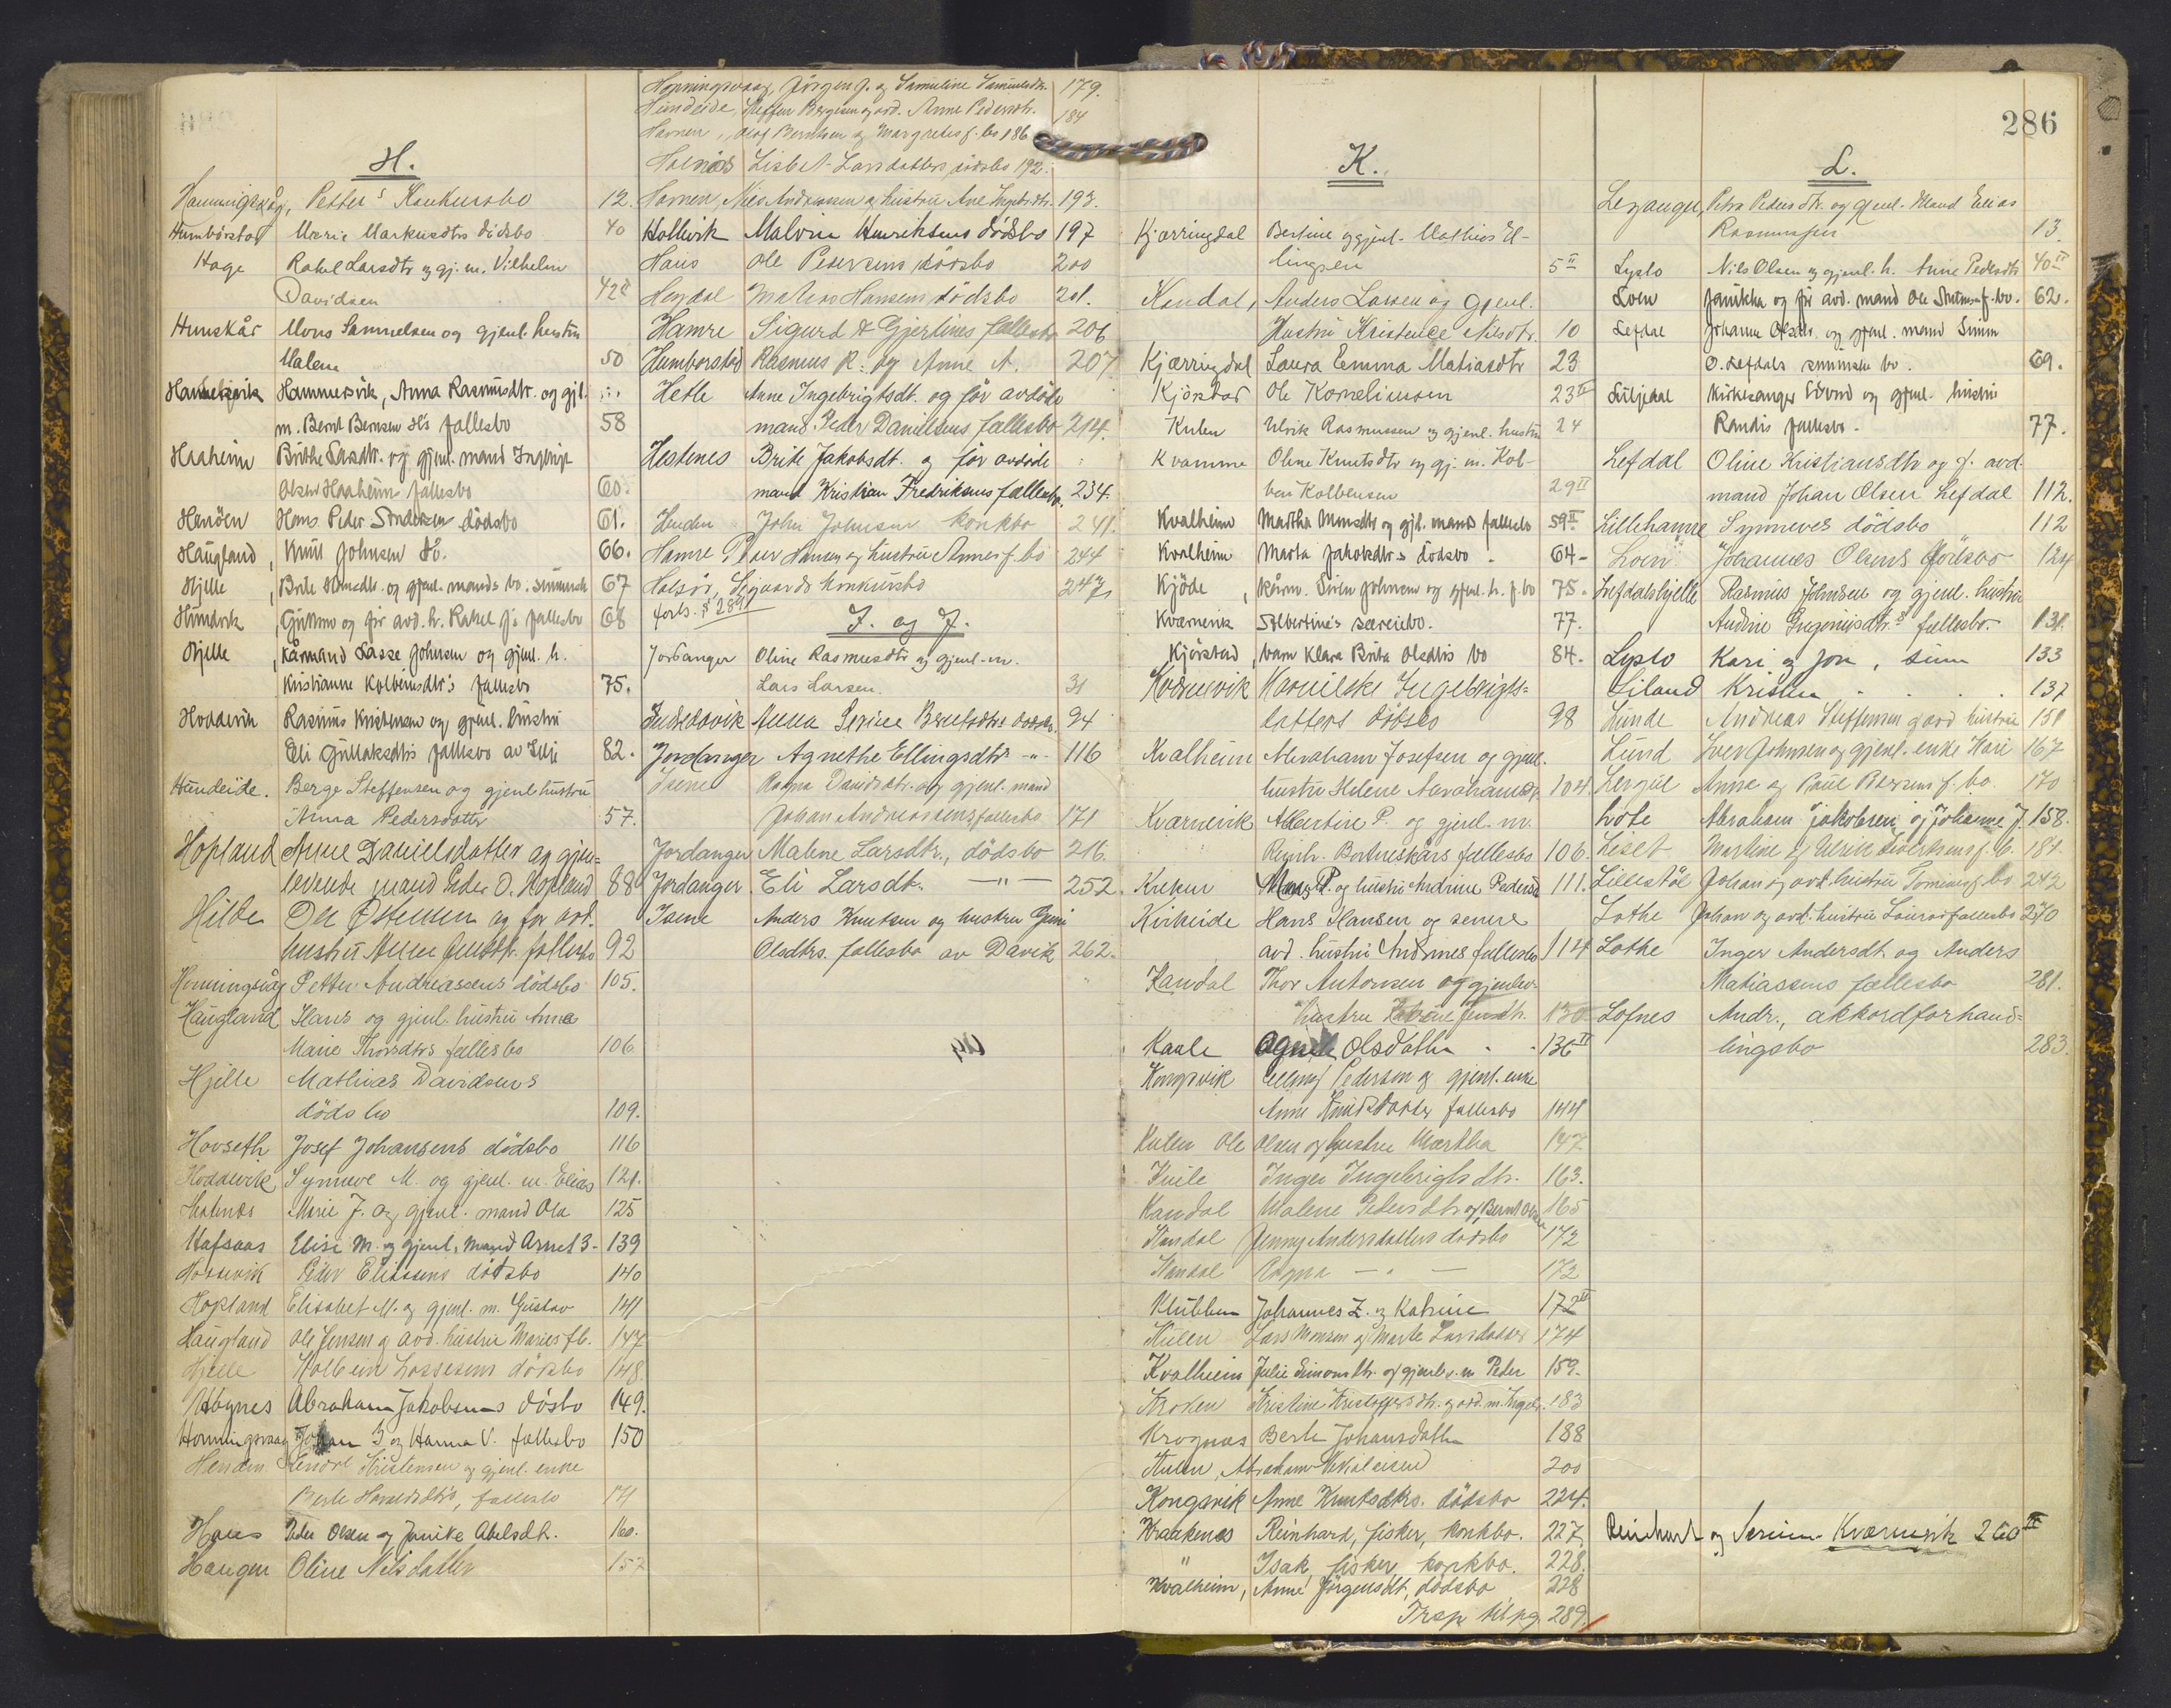 H.
Hanningsvåg, Petter's Konkursbo 12.
Humborstad Marie Markusdtrs dödsbo 40
Hage Rakel Larsdtr og gj. m. Vilhelm
Davidsen 42II
Hunskår Mons Samuelsen og gjenl. hustru
Malene 50
Hammersvik Hammersvik, Anna Rasmusdtr. og gjl.
m. Bernt Bernsen H's fallesbo 58
Haaheim Brithe Lasdtr. og gjenl. mand Ingbrigt
Olsen Haaheim fallesbo 60.
Henöen Hans Peder Sondersen dödsbo 61.
Haugland, Knut Johnsen H. 66.
Hjelle, Brite Monsdtr. og gjenl. mands bo. 67
Hundvik, Guttorm og för avd. h. Rakel J's fallesbo 68
Hjelle, Kårmand Lasse Johnsen og gjenl. h.
Kristianne Kolbeinsdtr's fallesbo 75.
Hoddevik Rasmus Kristensen og gjenl. hustru
Eli Gullaksdtrs fallesbo av Selje 82.
Hundeide. Berge Steffensen og gjenl hustru
Anna Pedersdatter 57.
Hopland Anne Danielsdatter og gjen=
levende mand Peder O. Hopland 88
Hilde Ole Ostensen og for avd.
hustru Anne fallesbo 92
Henningsvåg Petter Andreassens dödsbo 105.
Haugland Hans og gjenl. hustru Anne
Marie Thorsdtrs fællesbo 106
Hjelle Mathias Davidsens
dödsbo 109.
Hovseth Josef Johansens dödsbo 116
Hoddevik Synneve M. og gjenl. m. Elias 121.
Holmös Marie J. og gjenl. mand Ola 125
Hafsaas Elise M. og gjenl. mand Arnet 3- 139
Peder Eliassens dödsbo 140
Hopland Elisabet M. og gjenl. m. Gustav 141
Haugland Ole Jensen og avd. hustru Maries fb. 147
Hjelle Kolbein Lassesens dödsbo 148.
Abraham Jakobsens dösbo 149.
Honningsvaag Johan J og Hanna V. fallesbo 150
Henden Endre Kristensen og gjenl. enke
Berte Haraldsdtrs, fallesbo
Haus Peder Olsen og Janike Abelsdtr. 160.
Haugen Oline Nilsdatter 157
Honningsvaag, Jörgen J. og Samueline Samuelsdtr. 179.
Hundeide, Steffen Bergesen og avd. Anne Pedersdtr. 184
Hamen, Olaf Berntsen og Margretes f. bo 186
Holmös Lisbet Larsdatters dödsbo 192.
Hamen, Nils Andreassen og hustru Ane 193.
Hollevik Malvin Henriksens dödsbo 197
Haus Ole Pedersens dödsbo 200
Heydal Matias Hansens dödsbo 201.
Hamre Sigurd & Gjertines fallesbo 206
Humborstad Rasmus R. og Anne A. 207
Hetle Anne Ingebrigtsdt. og för avdöde
mand Peder Danielsens fællesbo 214.
Hestenes Brite Jakobsdt. og för avdöde
mand Kristian Fredriksens fællesbo 234.
Henden John Johnsen konkbo 241.
Hamre Peder Hansen og hustru Annes f. bo 244
Holsör, Sigvards konkursbo 247
forts. s 289
I. og J.
Jordanger Oline Rasmusdtr og gjenl. m.
Lars Larsen. 31
Indrevik Anna Serine Berntsdtrs dödsbo. 94
Jordanger Agnethe Ellingsdtr -"- 116
Isene Ragna Davidsdtr. og gjenl. mand
Johan Andreassens fallesbo 171
Jordanger Malene Larsdtr., dödsbo 216.
Jordanger Eli Larsdt. -"- 252.
Isene Anders Knutsen og hustru Guni
Olsdtrs. fallesbo av Davik 262.
286
K.
Kjærringdal Bertine og gjenl. Mathias El-
lingsen 5II
Kandal, Anders Larsen og gjenl.
Hustru Kristence Nilsdtr. 10
Kjærringdal Laura Emma Matiasdtr 23
Kjörstad Ole Korneliussen 23II
Kulen Ulrik Rasmussen og gjenl. hustru 24
Kvamme Oline Knutsdtr og gj. m. Kol-
ben Kolbensen 29II
Kvalheim Martha Monsdtr og gjl. mands fallesbo 59II
Kvalheim Marta Jakobsdtrs dödsbo 64-
Kjöde, Kårm. Sivert Johnsen og gjenl. h. f. bo 75.
Kvernevik Albertine's særeiebo. 77.
Kjörstad, barn Klara Brita Olsdtrs bo 84.
Kvernevik Ingebrigts=
datters döbsbo 98
Kvalheim Abraham Josefsen og gjenl.
hustru Helene Abrahamsdtr 104
Kvernevik Albertine P. og gjenl. m.
Bortneskårs fallesbo 106.
Mons P. og hustru Andrine Pedersd. 111.
Kirkeide Hans Hansen og senere
avd. hustru Andrines fallesbo 114
Kandal Thor Antonsen og gjenlev.
hustru 130
Kaale Agnete Olsdatter 136II
Kongsvik Elling Pederson og gjenl. enke
Anne Knudsdatter fallesbo 144
Kulen Ole Olsen og hustru Martha 147
Kuile Inger Ingebrigtsdtr. 163.
Kandal Malene Pedersdtr og Bernt Olsen 165
Kandal Jenny Andersdatters dödsbo 172
Kandal Ragna -"- 172
Klubben Johannes Z. og Katrine 172II
Kulen Lars Monsen og Marte Larsdatter 174
Kvalheim Julie Simonsdtr. og gjenlev. m Peder 159.
Kroken Kristine Kristoffersdtr. og avd. m. Ingebr. 183
Krognæs Berte Johansdatter 188
Kulen, Abraham Mikalsen 200
Kongsvik Anne Knutsdtrs. dödsbo 224.
Kraakenes Reinhard, fisker, konkbo. 227.
" Isak, fisker konkbo. 228.
Kvalheim, Anne Jörgensdt, dödsbo 228
Trsp. til pg. 289.
L.
Levanger, Petra Pedersdtr. og gjenl. Mand Elias
Rasmussen 13.
Lyslo Nils Olsen og gjenl. h. Anne Pedersdtr 40II
Loen Janikka og för avd. mand Ole f. bo. 62.
Lefdal Johanne Olsdtr. og gjenl. mand Simon
O. Lefdals bo. 69.
Kirkesanger Eivind og gjenl. hustru
Randis fallesbo. 77.
Lefdal Oline Kristiansdtr og f. avd.
mand Johan Olsen Lefdal 112.
Lillehamre Synneves dödsbo 112
Loen Johannes Olsens dödsbo 124
Lefdalshjelle Rasmus Johnsen og gjenl. hustru
Andrine fallesbo. 131.
Lyslo Kari og Jon, 133
Liland Kristen 137
Lunde Andreas Steffensen og avd hustru 151
Lund Iver Johnsen og gjenl. enke Kari 167
Anne og Paul f. bo. 170
Lote Abraham Jakobsen og Johanne J. 158.
Liset Martine og 181.
Lillestöl Johan og avd. hustru f. bo 242
Lothe Johan og avd. hustru Lauras fallesbo 270
Lothe Inger Andersdt. og Anders
Matiassens fællesbo 281.
Lofnes Andr., akkordforhand=
lingsbo 283.
Reinhart og Serine Kvernevik 260II